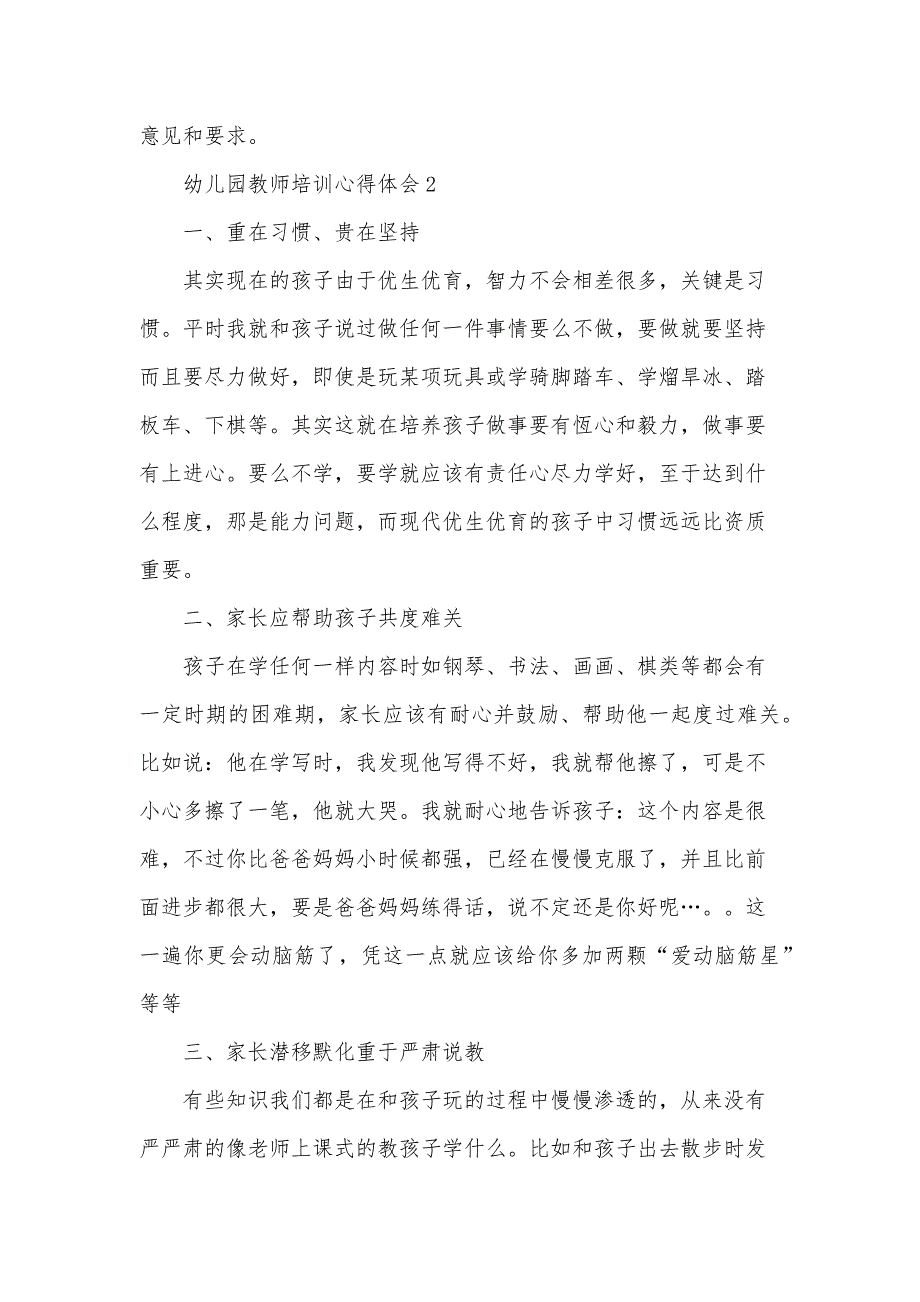 意见和要求。
幼儿园教师培训心得体会2
一、重在习惯、贵在坚持
其实现在的孩子由于优生优育，智力不会相差很多，关键是习
惯。平时我就和孩子说过做任何一件事情要么不做，要做就要坚持
而且要尽力做好，即使是玩某项玩具或学骑脚踏车、学熘旱冰、踏
板车、下棋等。其实这就在培养孩子做事要有恆心和毅力，做事要
有上进心。要么不学，要学就应该有责任心尽力学好，至于达到什
么程度，那是能力问题，而现代优生优育的孩子中习惯远远比资质
重要。
二、家长应帮助孩子共度难关
孩子在学任何一样内容时如钢琴、书法、画画、棋类等都会有
一定时期的困难期，家长应该有耐心并鼓励、帮助他一起度过难关。
比如说：他在学写时，我发现他写得不好，我就帮他擦了，可是不
小心多擦了一笔，他就大哭。我就耐心地告诉孩子：这个内容是很
难，不过你比爸爸妈妈小时候都强，已经在慢慢克服了，并且比前
面进步都很大，要是爸爸妈妈练得话，说不定还是你好呢…。。这
一遍你更会动脑筋了，凭这一点就应该给你多加两颗“爱动脑筋星”
等等
三、家长潜移默化重于严肃说教
有些知识我们都是在和孩子玩的过程中慢慢渗透的，从来没有
严严肃的像老师上课式的教孩子学什么。比如和孩子出去散步时发